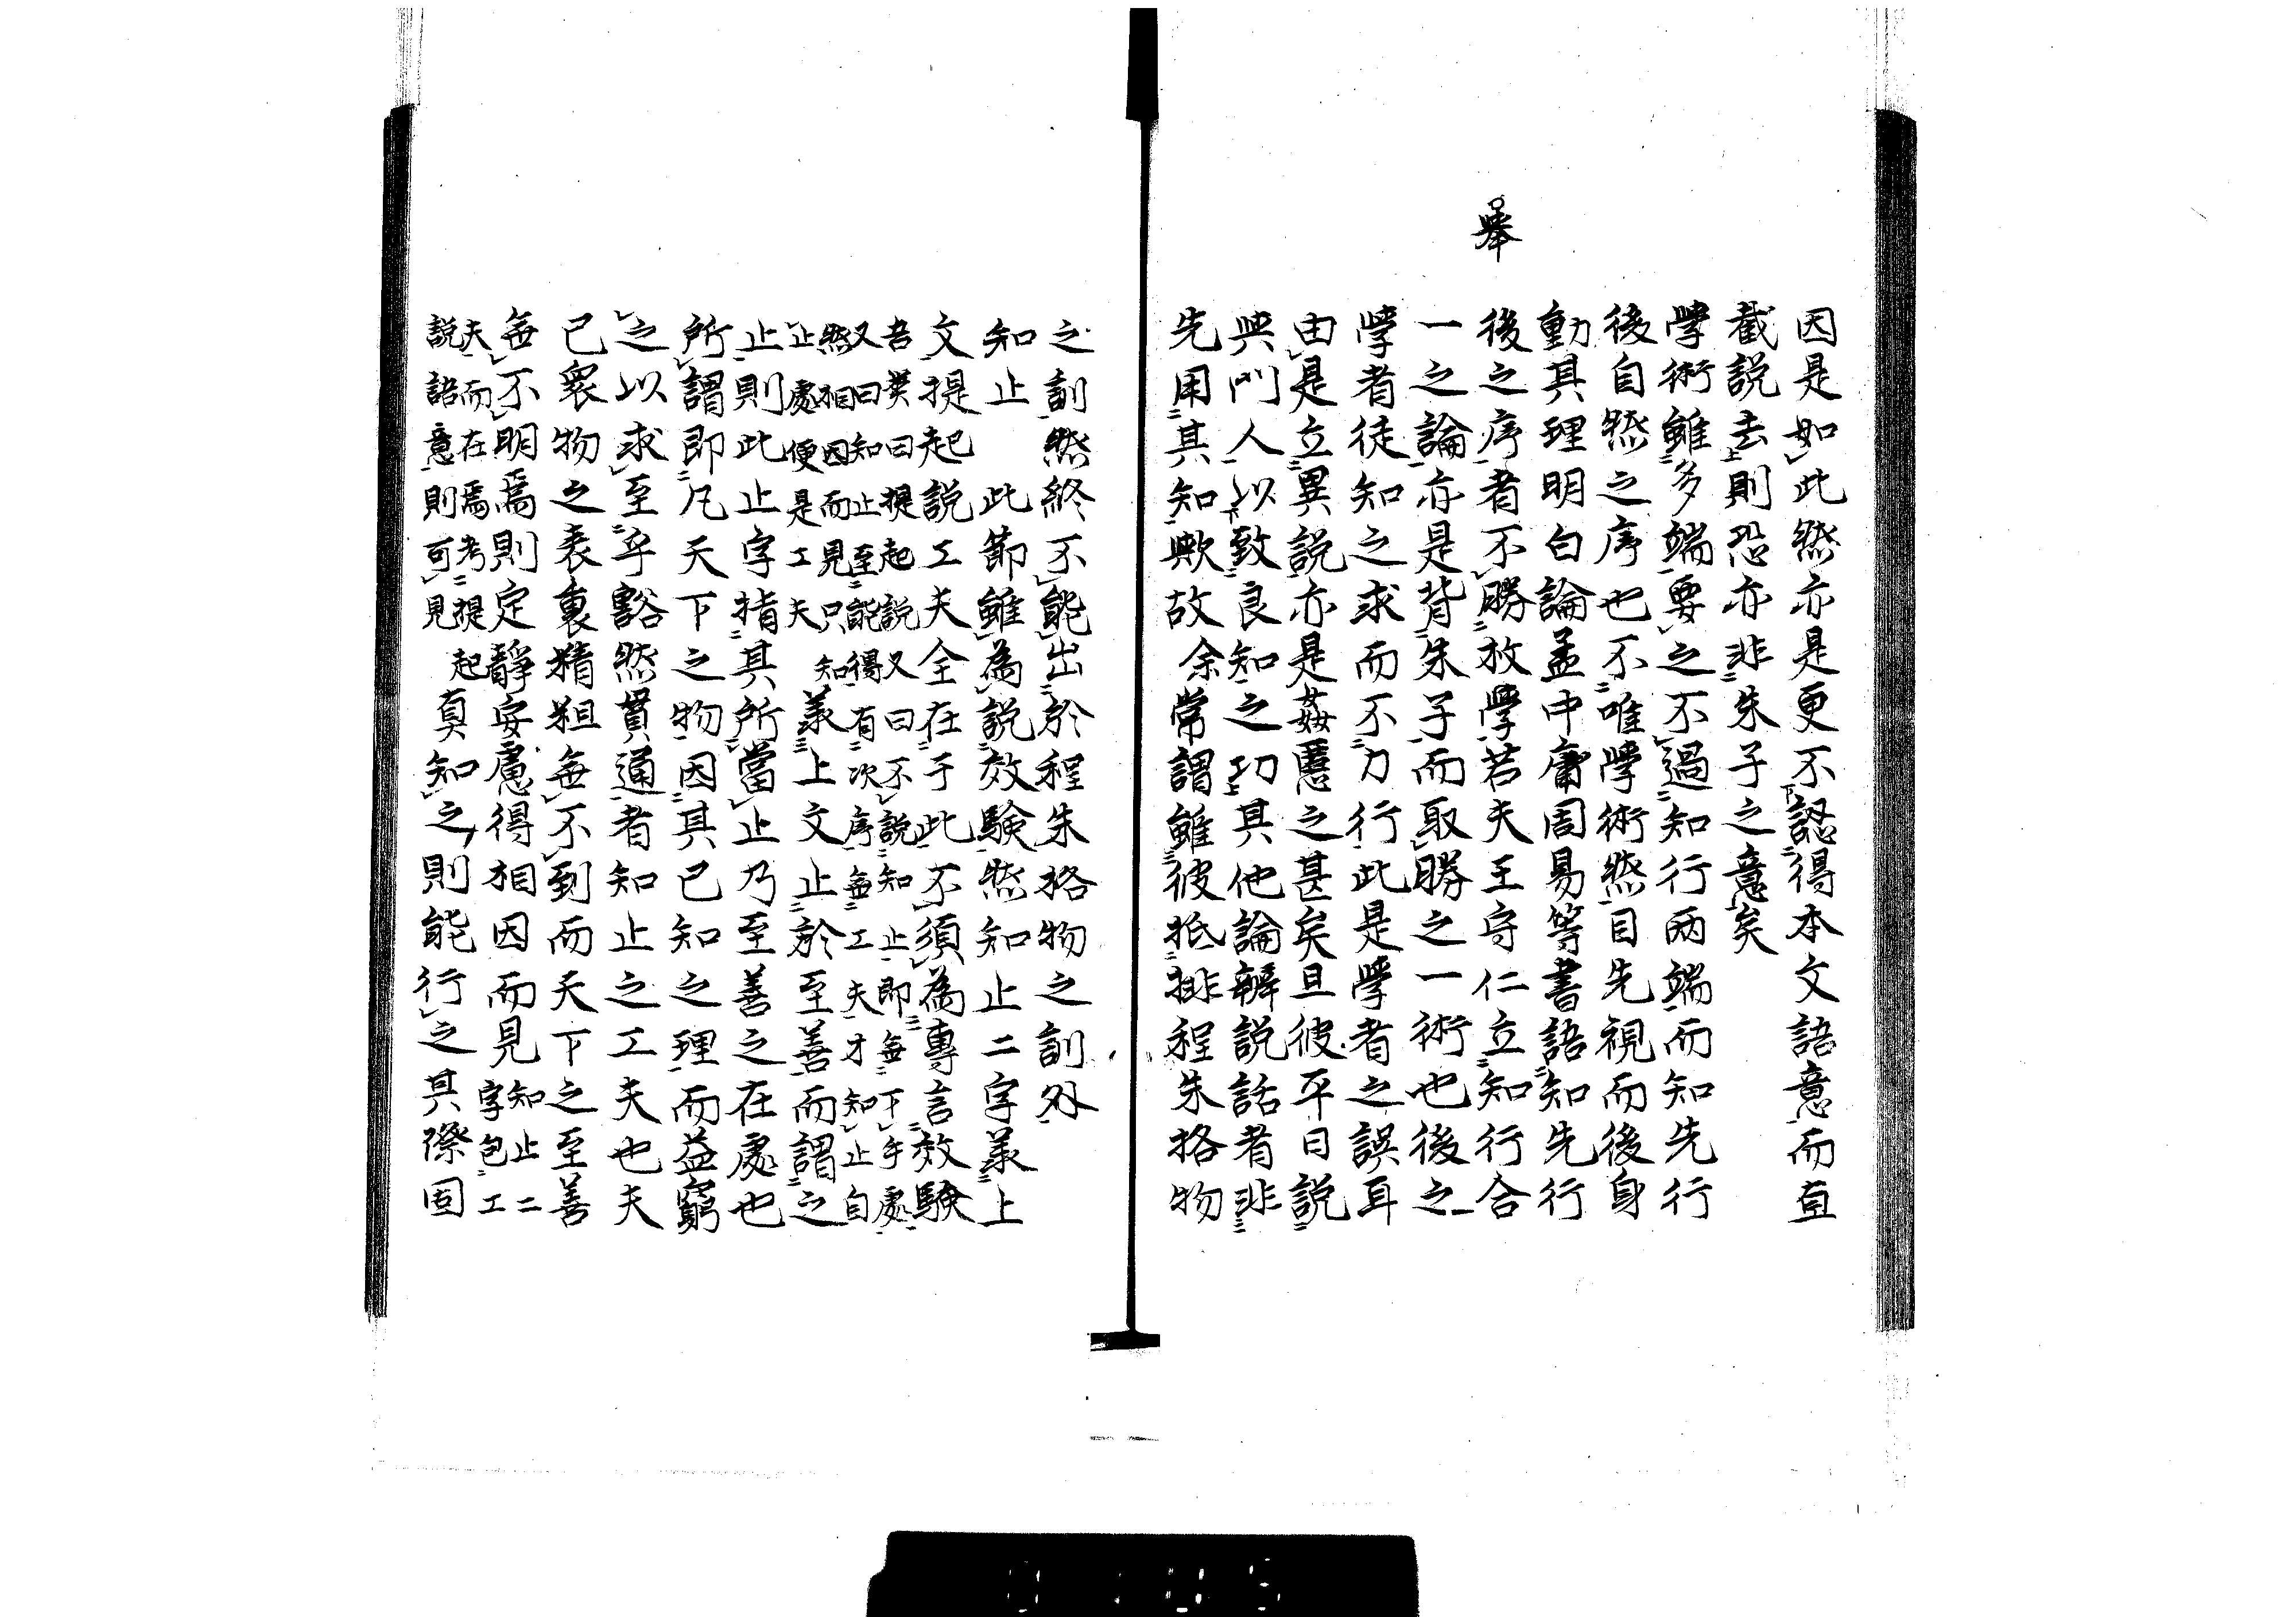 舉
因是如此然亦是更不認得本文語意而直
截説去則恐亦非朱子之意矣
學術雖多端要之不過知行兩端而知先行
後自然之序也不唯學術然目先視而後身
動其理明白論孟中庸周易等書語知先行
後之序者不勝放學若夫王守仁立知行合
一之論亦是背朱子而取勝之一術也後之
學者徒知之求而不力行此是學者之誤耳
由是立異説亦是姦慝之甚矣且彼平日説
與門人以致良知之功其他論辨説話者非
先用其知歟故余常謂雖彼抵排程朱格物
之訓然終不能出於程朱格物之訓外
知止 此節雖為説效驗然知止二字義上
文提起説工夫全在于此不須為專言效驗
吾黄曰提起説又曰不説知止即無下手處
又曰知止至能得有次序無工夫才知止自
然相因而見只知
止處便是工夫 義上文止於至善而謂之
止則此止字指其所當止乃至善之在處也
所謂即凡天下之物因其已知之理而益窮
之以求至乎豁然貫通者知止之工夫也夫
已衆物之表裏精粗無不到而天下之至善
無不明焉則定靜安慮得相因而見知止二字包工
夫而在焉考提起
説語意則可見 真知之則能行之其際固